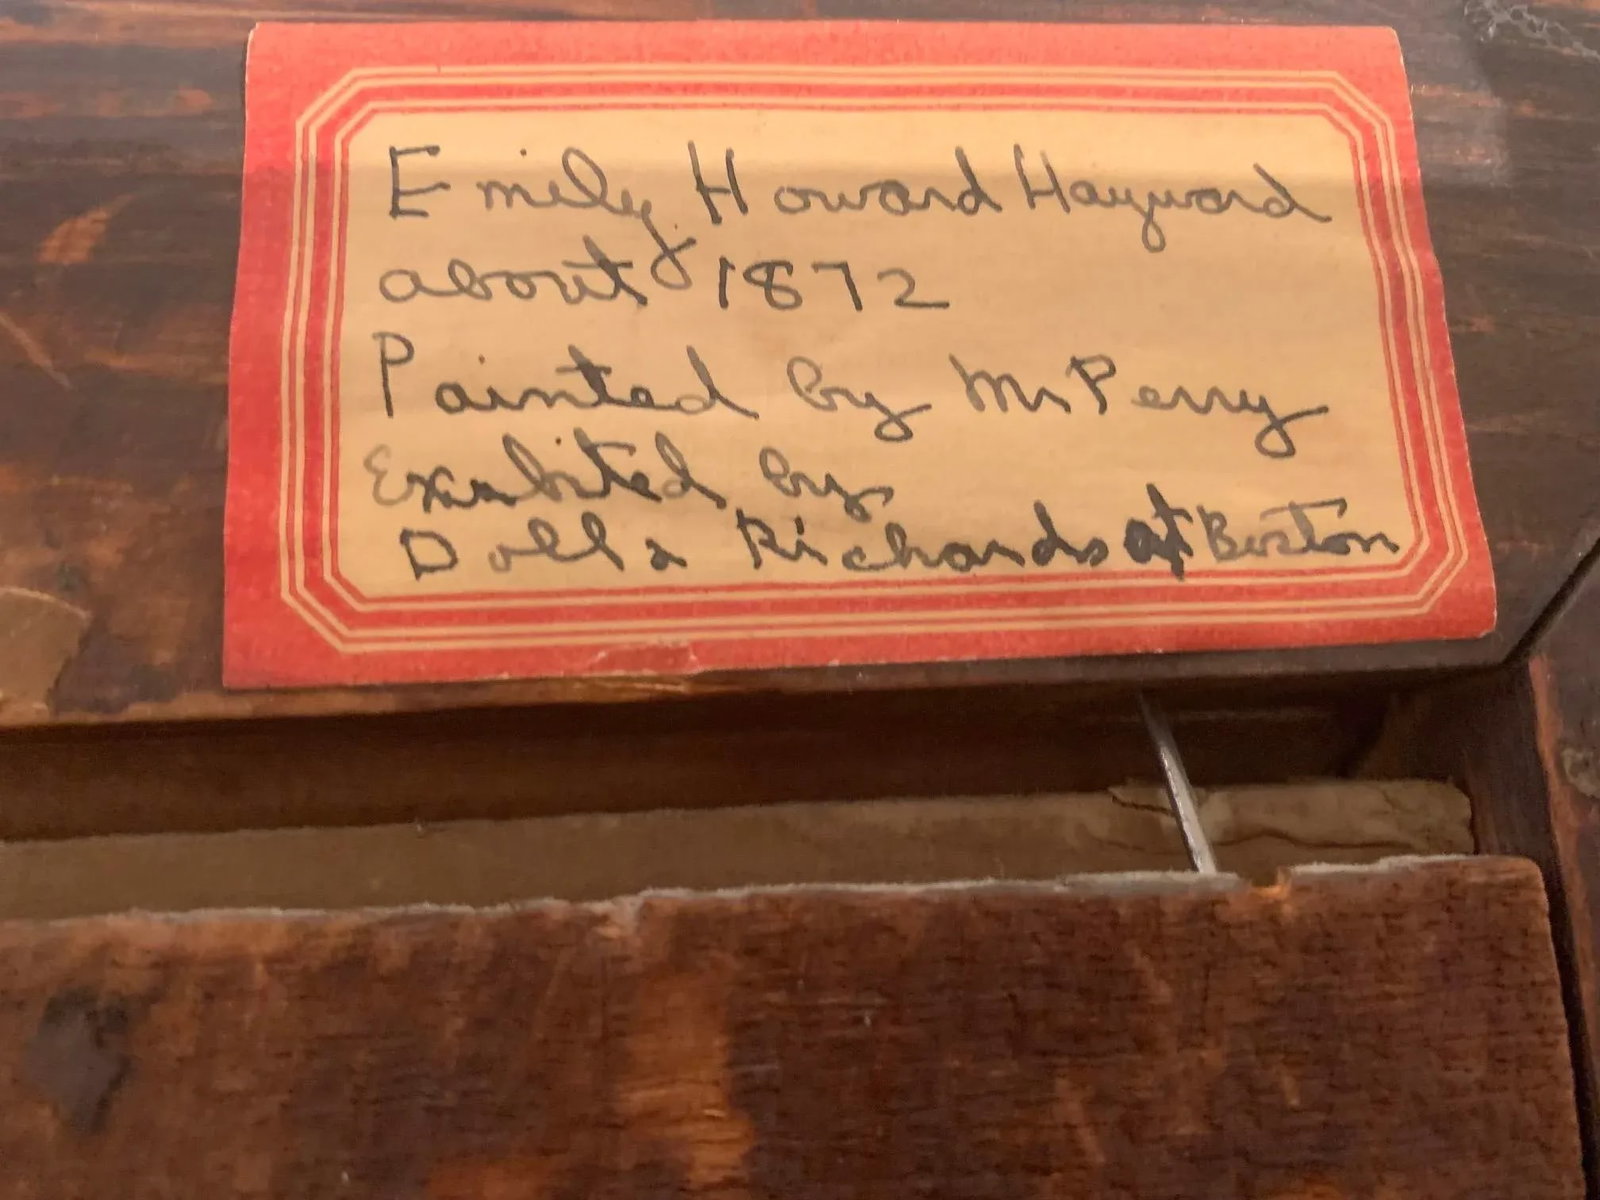 Emily Howard Hayward
about 1872
Painted by Mr Perry
Exabited by
Doll & Richards of Boston